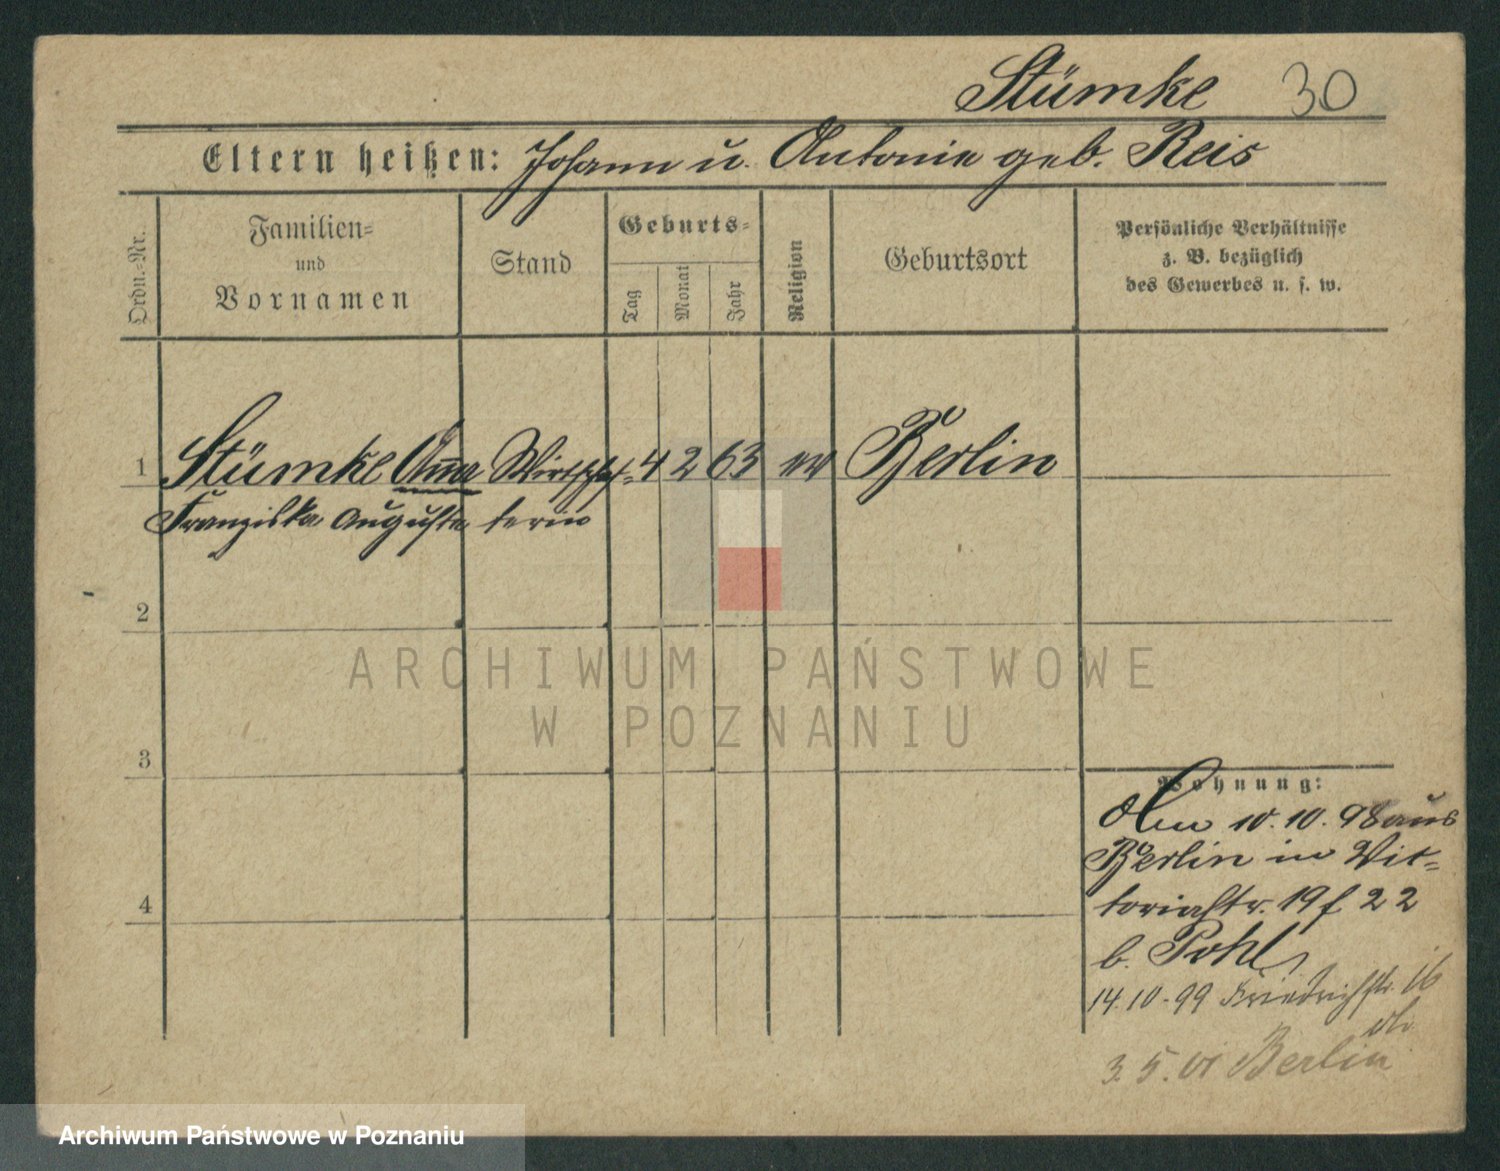 Stümke 30
Eltern heißen: Johann u. Antonie geb. Reis
Ordn.-Nr.
Familien-
und
Vornamen
Stand
Geburts-
Tag
Monat
Jahr
Religion
Geburtsort
Persönliche Verhältnisse
z. B. bezüglich
des Gewerbes u. s. w.
1 Stümke Anna Wirtschaf- 4 2 63 ev Berlin
Franziska Auguste terin
2
ARCHIWUM PAŃSTWOWE
W POZNANIU
3
Wohnung:
10.10.98 aus
Berlin in Vic-
toriastr. 19 f 22
b. Pohl
14.10.99 Friedrichstr. 16
4
3.5.01 Berlin
Archiwum Państwowe w Poznaniu